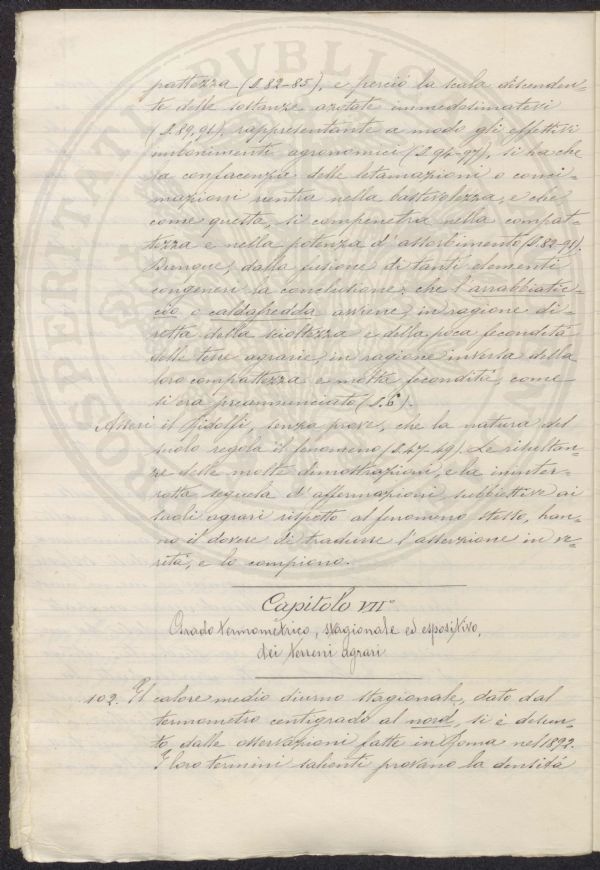 pattezza (§. 82-85), e perciò la scala discenden-
te delle sostanze azotate immedesimatevi
(§. 89, 91), rappresentante a modo gli effettivi
agronomici (§. 94-97), si ha che
la confacenza delle letamazioni o conci-
mazioni rientra nella bastevolezza, e che
come questa, si compenetra nella compat-
tezza e nella potenza d'assorbimento (§. 82-91).
Dunque, dalla fusione di tanti elementi
congeneri la conclusione: che l'arrabbiatic-
cio o caldafredda avviene, in ragione di-
retta della scioltezza e della poca fecondità
delle terre agrarie, in ragione inversa della
loro compattezza e molta fecondità, come
si era preannunciato (§. 6).
Asserì il Ridolfi, senza prove, che la natura del
suolo regola il fenomeno (§. 47-49). Le risultan-
ze delle mosse dimostrazioni, e la ininter-
rotta sequela d'affermazioni, subbiettive ai
suoli agrari rispetto al fenomeno stesso, han-
no il dovere di tradurre l'asserzione in ve-
rità, e lo compiono.
Capitolo VII°
Grado termometrico, stagionale ed espositivo,
dei terreni agrari
102. Il calore medio diurno stagionale, dato dal
termometro centigrado al nord, si è desun-
to dalle osservazioni fatte in Roma nel 1892.
I loro termini salienti provano la densità
PROSPERITATI PVBLICAE